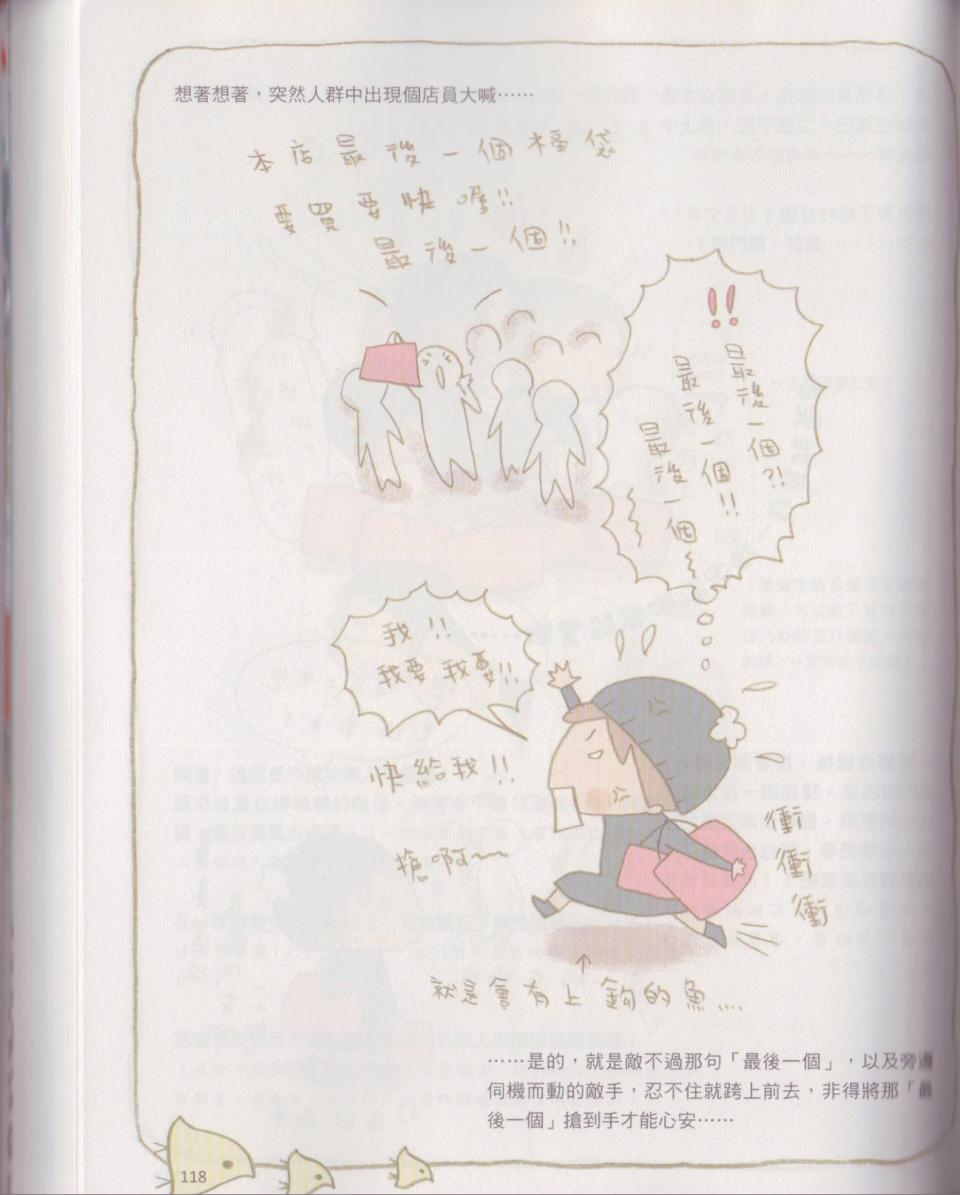 想著想著，突然人群中出現個店員大喊……
本店最後一個福袋
要買要快喔!!
最後一個!!
!!
最後一個?!
最後一個!!
最後一個
我!!
我要我要!!
快給我!!
搶啊～～
衝
衝
衝
↑
就是會有上鉤的魚....
……是的，就是敵不過那句「最後一個」，以及旁邊
伺機而動的敵手，忍不住就跨上前去，非得將那「最
後一個」搶到手才能心安……
118